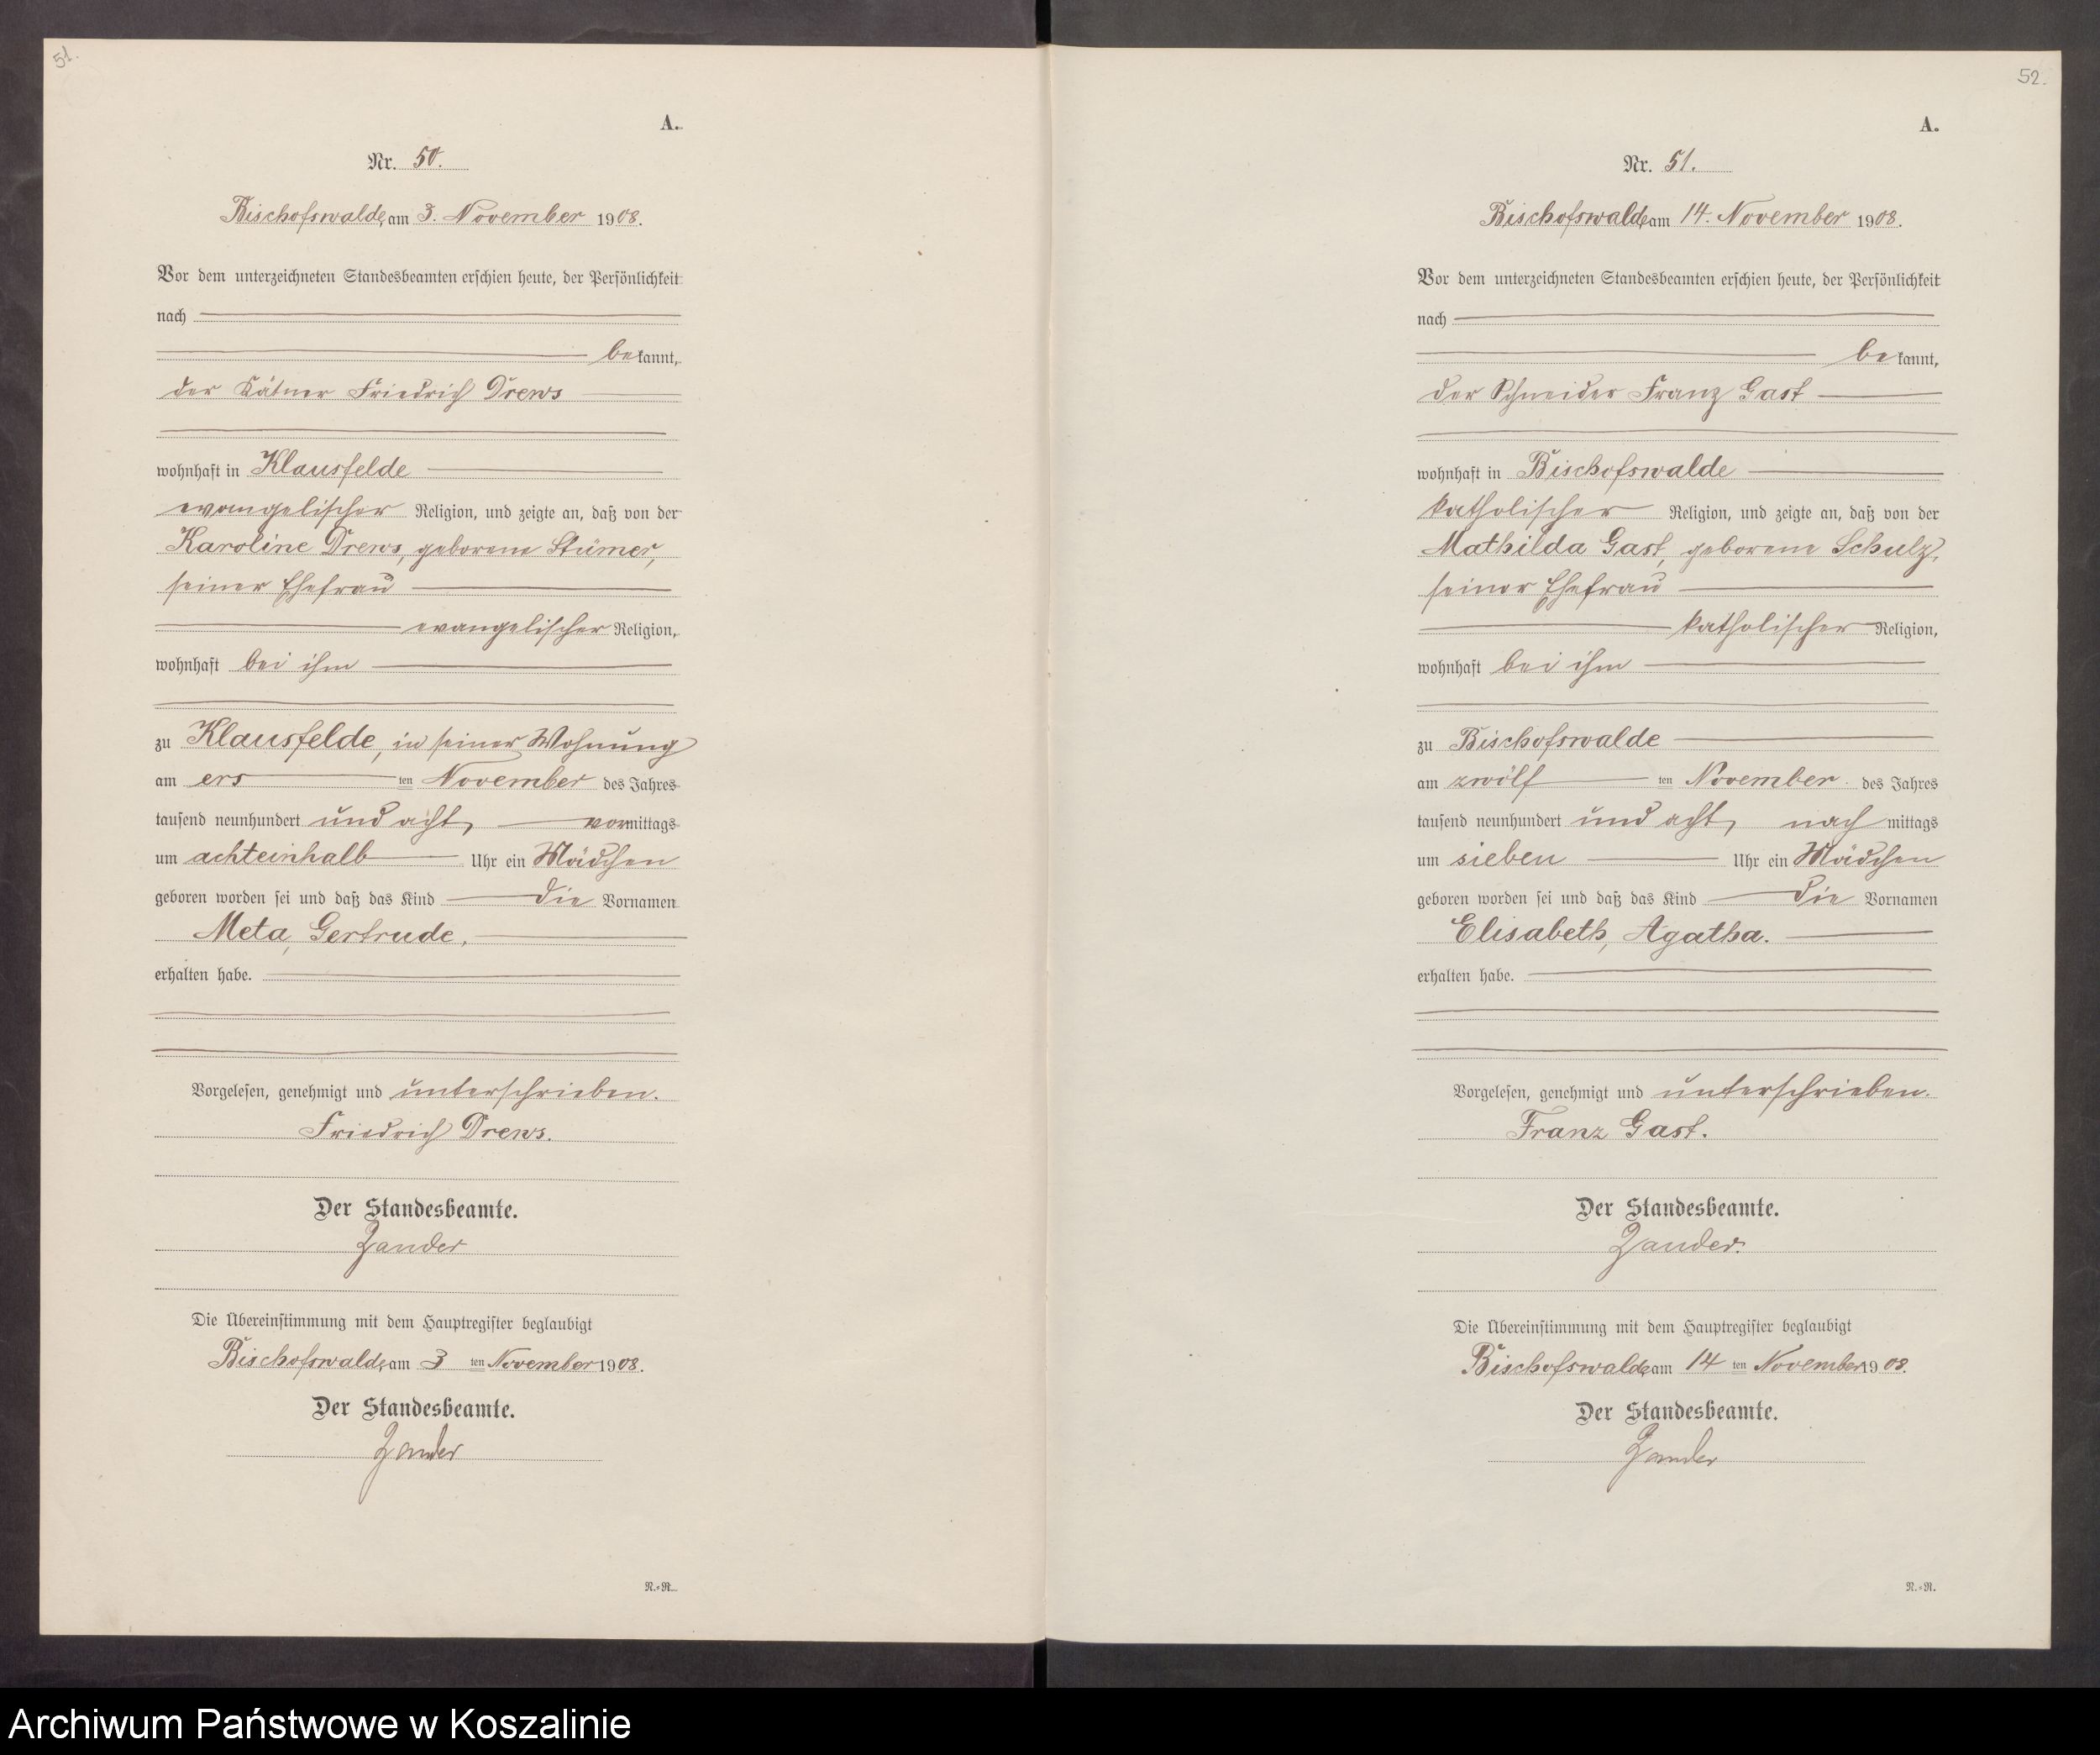 51.
A.
Nr. 50.
Bischofswalde, am 3. November 1908.
Vor dem unterzeichneten Standesbeamten erschien heute, der Persönlichkeit
nach
bekannt,
der Kätner Friedrich Drews
wohnhaft in Klausfelde
evangelischer Religion, und zeigte an, daß von der
Karoline Drews, geborene Stümer,
seiner Ehefrau
evangelischer Religion,
wohnhaft bei ihm
zu Klausfelde, in seiner Wohnung
am ersten November des Jahres
tausend neunhundert und acht, vormittags
um achteinhalb Uhr ein Mädchen
geboren worden sei und daß das Kind die Vornamen
Meta, Gertrude.
erhalten habe.
Vorgelesen, genehmigt und unterschrieben.
Friedrich Drews.
Der Standesbeamte.
Zander
Die Übereinstimmung mit dem Hauptregister beglaubigt
Bischofswalde, am 3 ten November 1908.
Der Standesbeamte.
Zander
N.=R.
52.
A.
Nr. 51.
Bischofswalde, am 14. November 1908.
Vor dem unterzeichneten Standesbeamten erschien heute, der Persönlichkeit
nach
bekannt,
der Schneider Franz Gast
wohnhaft in Bischofswalde
katholischer Religion, und zeigte an, daß von der
Mathilda Gast, geborene Schulz,
seiner Ehefrau
katholischer Religion,
wohnhaft bei ihm
zu Bischofswalde
am zwölften November des Jahres
tausend neunhundert und acht, nachmittags
um sieben Uhr ein Mädchen
geboren worden sei und daß das Kind die Vornamen
Elisabeth, Agatha.
erhalten habe.
Vorgelesen, genehmigt und unterschrieben.
Franz Gast.
Der Standesbeamte.
Zander.
Die Übereinstimmung mit dem Hauptregister beglaubigt
Bischofswalde, am 14 ten November 1908.
Der Standesbeamte.
Zander
N.=R.
Archiwum Państwowe w Koszalinie